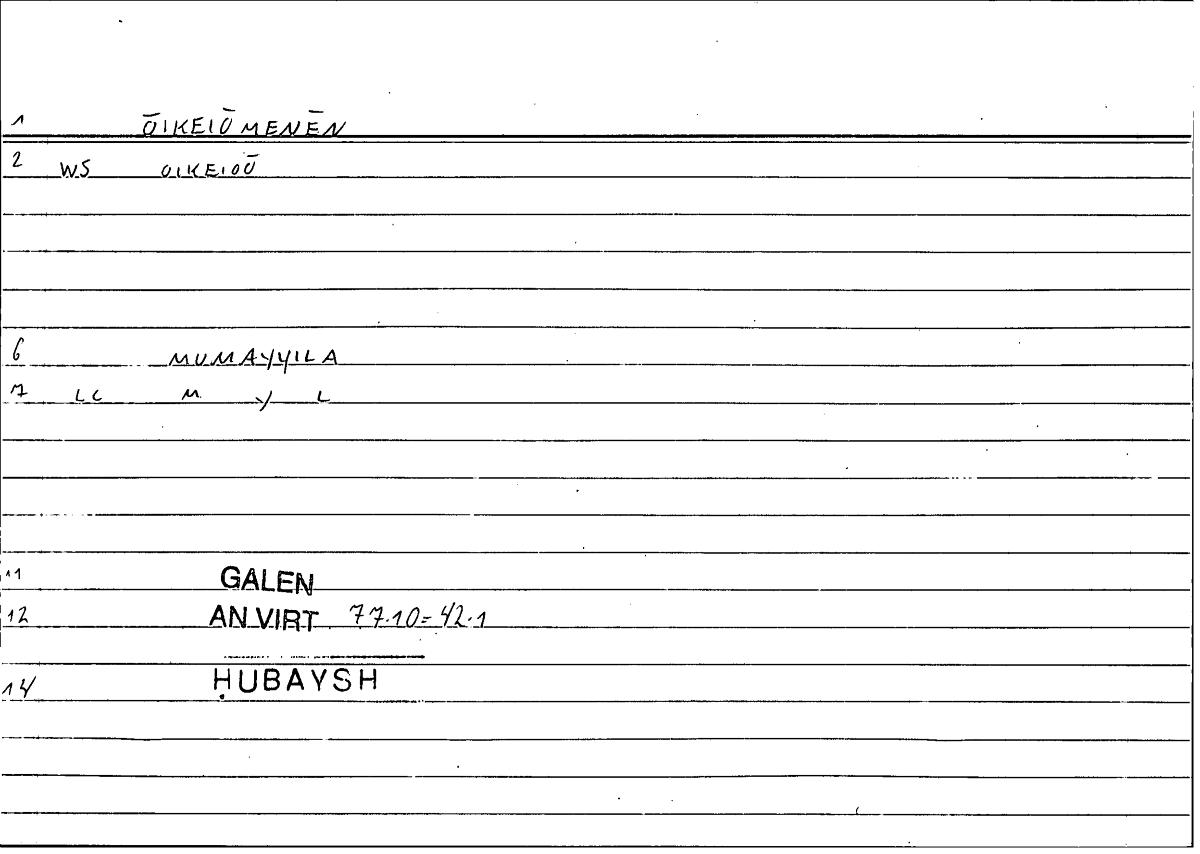 1 ŌIKEIŌMENĒN
2 WS OIKEIOŌ
6 MUMAYYILA
7 LC M Y L
11 GALEN
12 AN VIRT 77.10=42.1
14 ḤUBAYSH